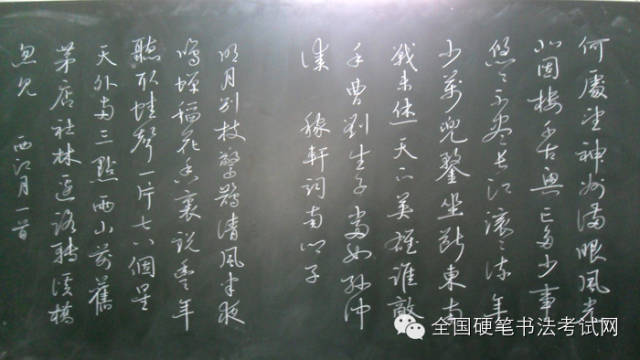 何處望神州滿眼風光
北固樓千古興亡多少事
悠々不盡長江滾々流年
少萬兜鍪坐斷東南
戰未休天下英雄誰敵
手曹劉生子當如孫仲
謀 稼軒詞南鄉子
明月別枝驚鵲清風半夜
鳴蟬稻花香裏說豐年
聽取蛙聲一片七八個星
天外兩三點雨山前舊
茅店社林邊路轉溪橋
忽見 西江月一首
全国硬笔书法考试网